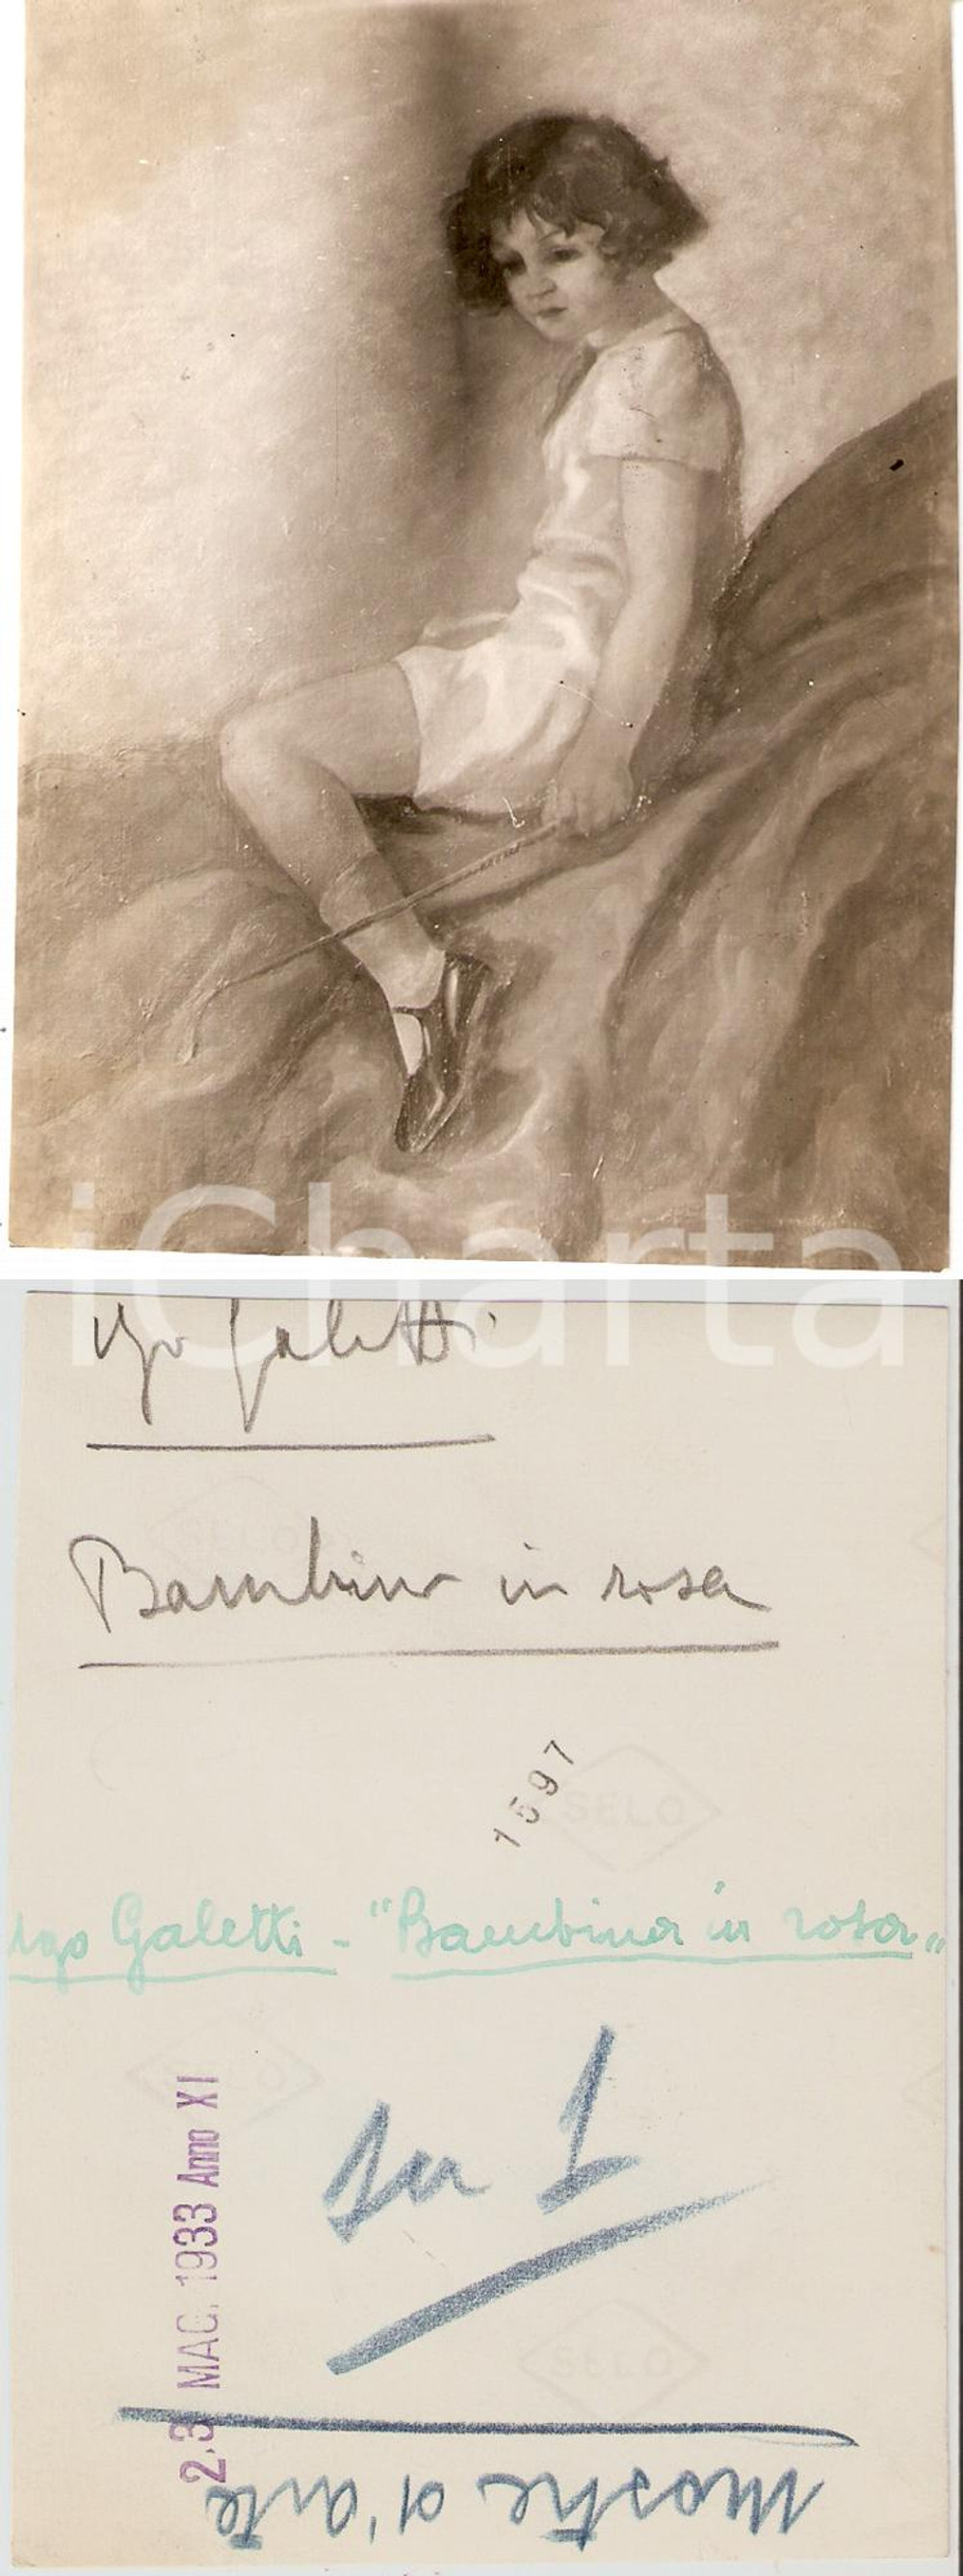 iCharta
Ugo Galetti
Bambina in rosa
1597
SELO
Ugo Galetti - "Bambina in rosa"
SELO
su 1
23 MAG. 1933 Anno XI
SELO
Mostre d'arte